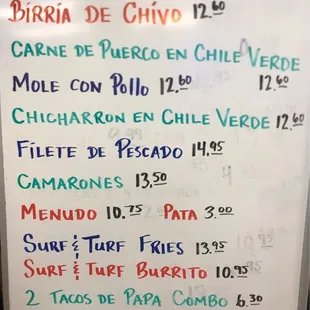 BIRRIA DE CHIVO 12.60
CARNE DE PUERCO EN CHILE VERDE
MOLE CON POLLO 12.60 12.60
CHICHARRON EN CHILE VERDE 12.60
FILETE DE PESCADO 14.95
CAMARONES 13.50
MENUDO 10.75 PATA 3.00
SURF & TURF FRIES 13.95
SURF & TURF BURRITO 10.95
2 TACOS DE PAPA COMBO 6.30